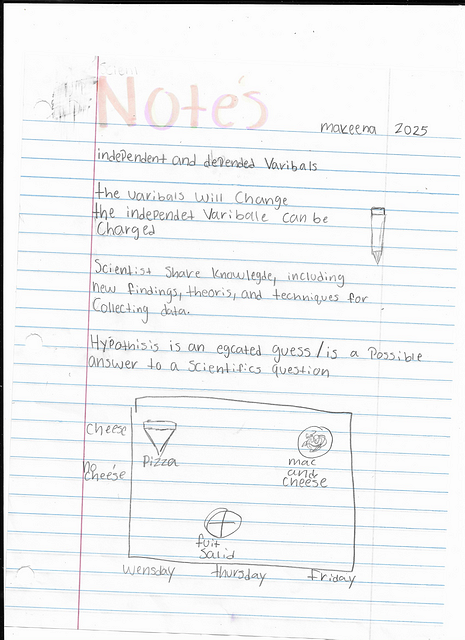 Notes
makeena 2025
independent and depended Varibals
the varibals will Change
the independet Varibale can be
Charged
Scientist Share Knowlegde, including
new findings, theoris, and techniques for
Collecting data.
Hypothisis is an egcated guess/is a Possible
answer to a Scientifics question
Cheese
Pizza
mac
and
Cheese
no
cheese
fuit
Salid
wensday thursday friday